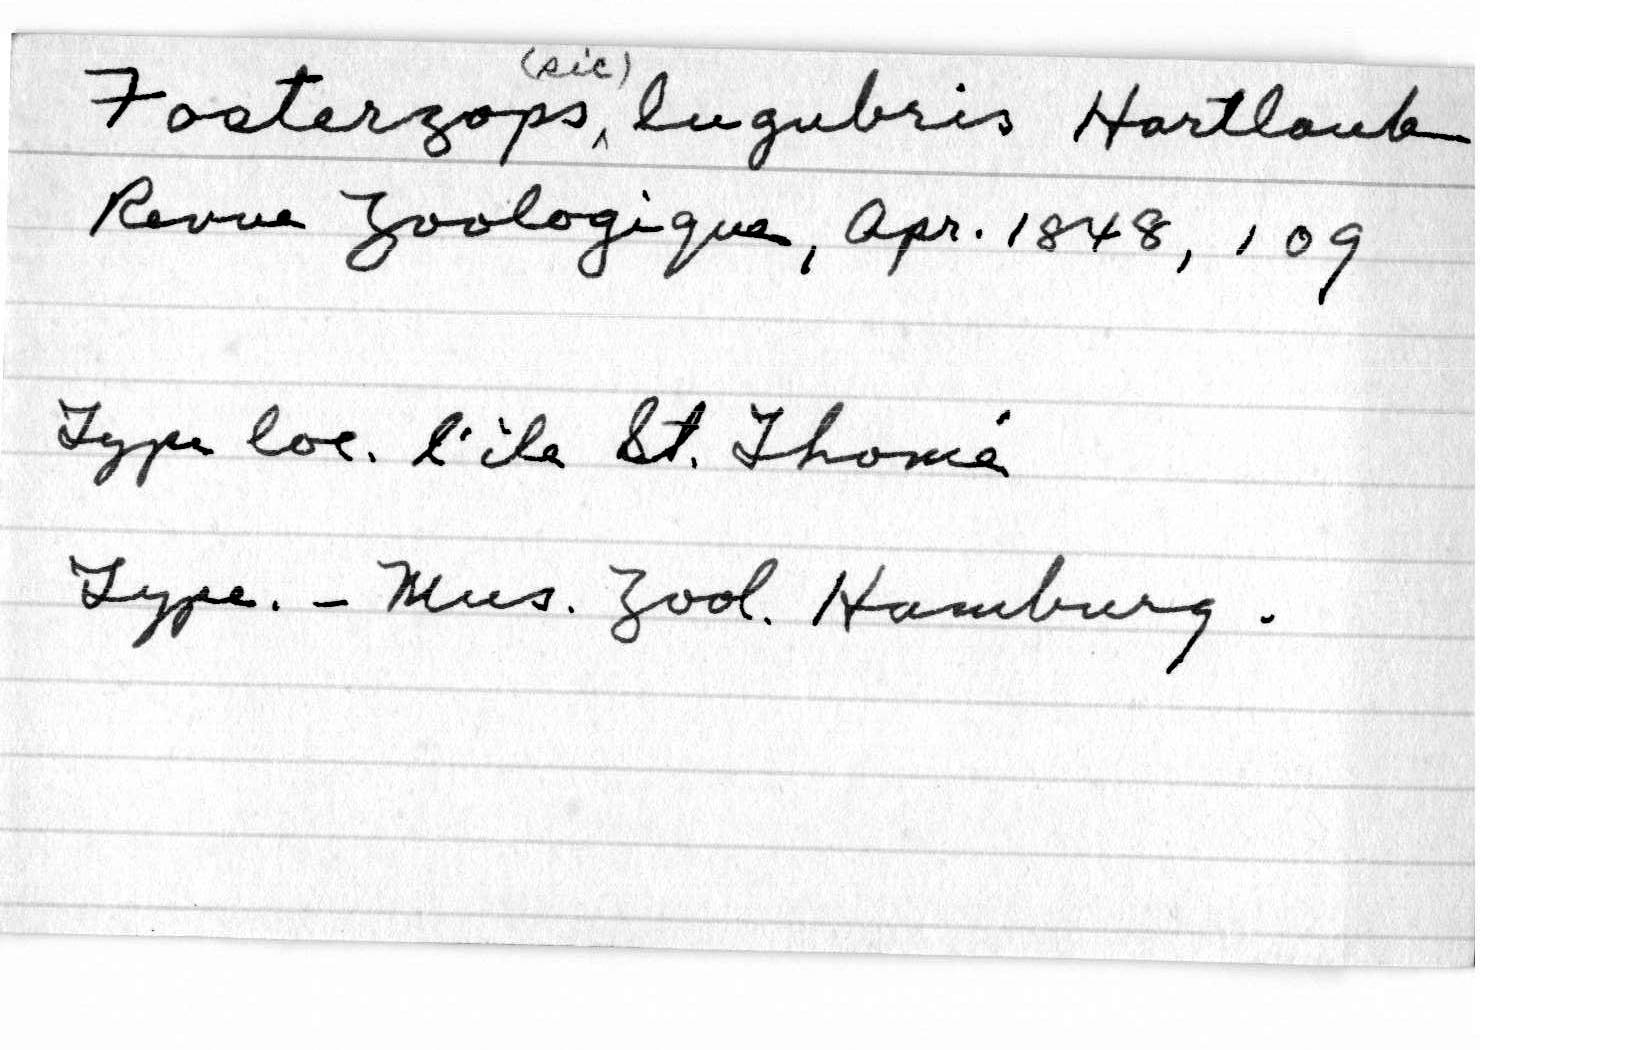 Fosterzops (sic) lugubris Hartlaub
Revue Zoologique, Apr. 1848, 109
Type loc. l'île St. Thomé
Type. - Mus. Zool. Hamburg.